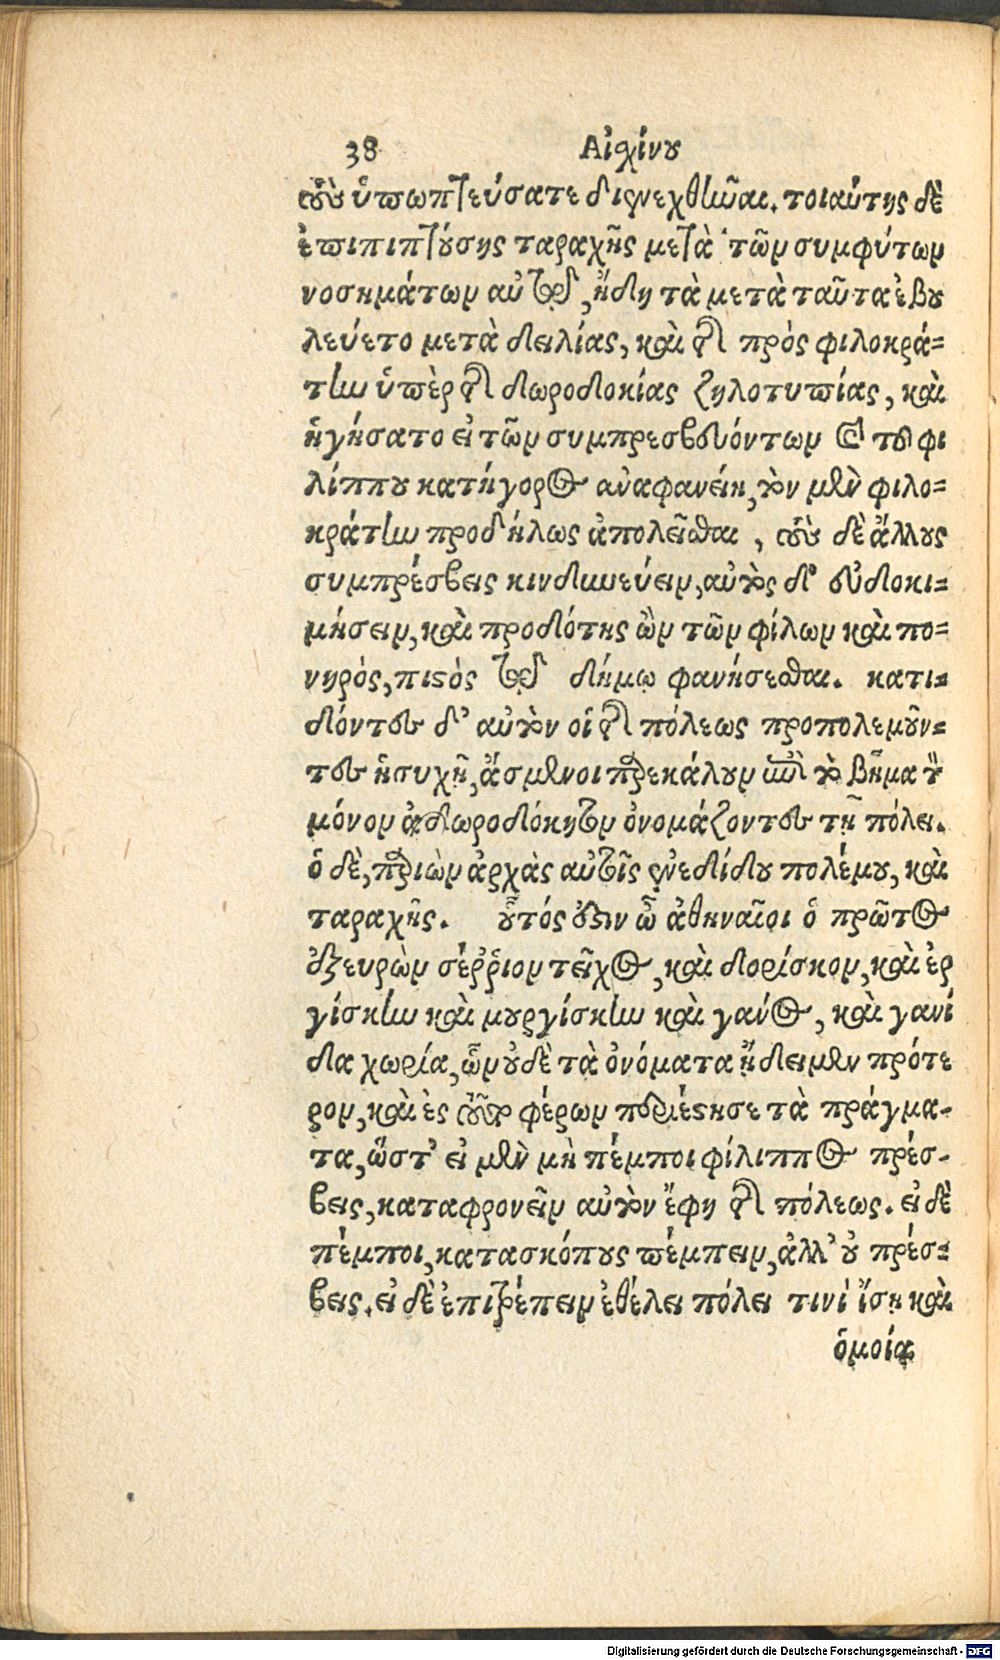 38 Αἰσχίνου
οὓς ὑπωπτεύσατε διενεχθῆναι. τοιαύτης δὲ
ἐπιπιπτούσης ταραχῆς μετὰ τῶν συμφύτων
νοσημάτων αὐτῷ, ἤδη τὰ μετὰ ταῦτα ἐβου
λεύετο μετὰ δειλίας, καὶ τῆς πρὸς φιλοκρά-
την ὑπὲρ τῆς δωροδοκίας ζηλοτυπίας, καὶ
ἡγήσατο εἰ τῶν συμπρεσβευόντων καὶ τοῦ φι
λίππου κατήγορος ἀναφανείη, τὸν μὲν φιλο-
κράτην προδήλως ἀπολεῖσθαι, τοὺς δὲ ἄλλους
συμπρέσβεις κινδυνεύειν, αὐτὸς δ' εὐδοκι-
μήσειν, καὶ προδότης ὢν τῶν φίλων καὶ πο-
νηρὸς, πιστὸς τῷ δήμῳ φανήσεσθαι. κατι-
δόντες δ' αὐτὸν οἱ τῆς πόλεως προπολεμοῦν-
τες ἡσυχῇ, ἄσμενοι παρεκάλουν ἐπὶ τὸ βῆμα τὸν
μόνον ἀδωροδόκητον ὀνομάζοντες τῇ πόλει.
ὁ δὲ, παριὼν ἀρχὰς αὐτοῖς ἐνεδίδου πολέμου, καὶ
ταραχῆς. οὗτός ἐστιν ὦ ἀθηναῖοι ὁ πρῶτος
ἐξευρὼν σέῤῥιον τεῖχος, καὶ δορίσκον, καὶ ἐρ
γίσκην καὶ μουργίσκην καὶ γανός, καὶ γανί
δα χωρία, ὧν οὐδὲ τὰ ὀνόματα ᾔδειμεν πρότε
ρον, καὶ ἐς τοῦτο φέρων περιέστησε τὰ πράγμα-
τα, ὥστ' εἰ μὲν μὴ πέμποι φίλιππος πρέσ-
βεις, καταφρονεῖν αὐτὸν ἔφη τῆς πόλεως. εἰ δὲ
πέμποι, κατασκόπους πέμπειν, ἀλλ' οὐ πρέσ-
βεις. εἰ δὲ ἐπιτρέπειν ἐθέλει πόλει τινί ἴσῃ καὶ
ὁμοίᾳ
Digitalisierung gefördert durch die Deutsche Forschungsgemeinschaft - DFG